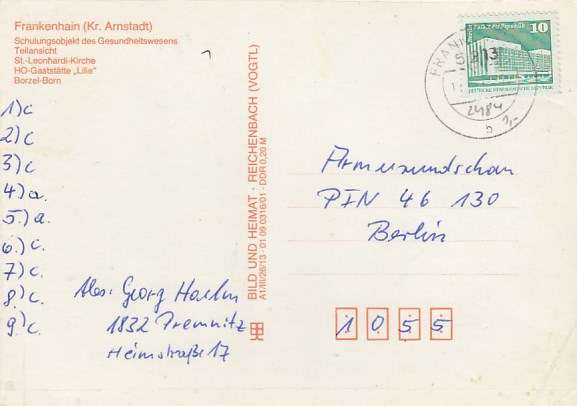 Frankenhain (Kr. Arnstadt)
Schulungsobjekt des Gesundheitswesens
Teilansicht
St.-Leonhardi-Kirche
HO-Gaststätte „Lilie"
Borzel-Born
1) c
2) c
3) c
4.) a.
5.) a.
6.) c.
7.) c.
8.) c.
9.) c.
Abs.: Georg
1832 Premnitz
Heimstraße 17
BILD UND HEIMAT · REICHENBACH (VOGTL)
A1/III/26/13 · 01 09 0316/01 · DDR 0,20 M
10
DEUTSCHE DEMOKRATISCHE REPUBLIK
Armeerundschau
PIN 46 130
Berlin
1 0 5 5